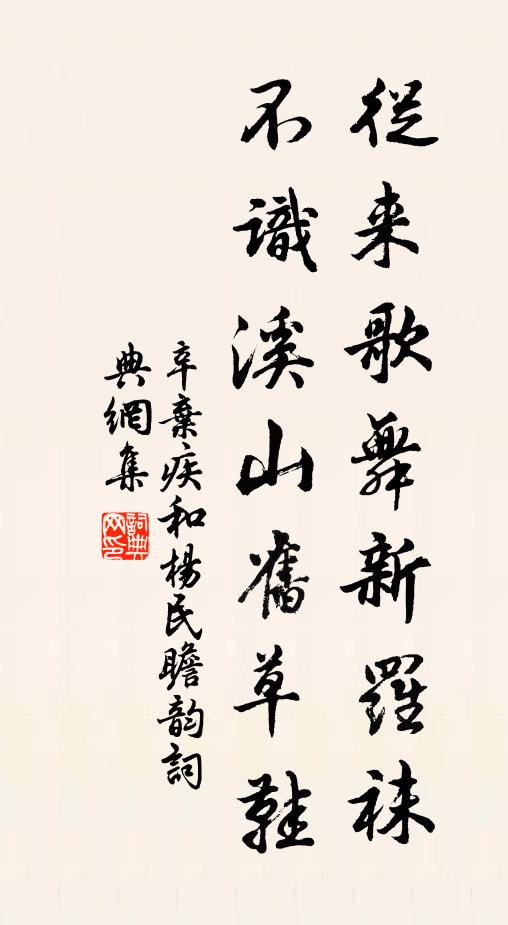 從来歌舞新羅袜
不識溪山舊草鞋
辛棄疾和楊民瞻韵詞
典網集
詞典
网印